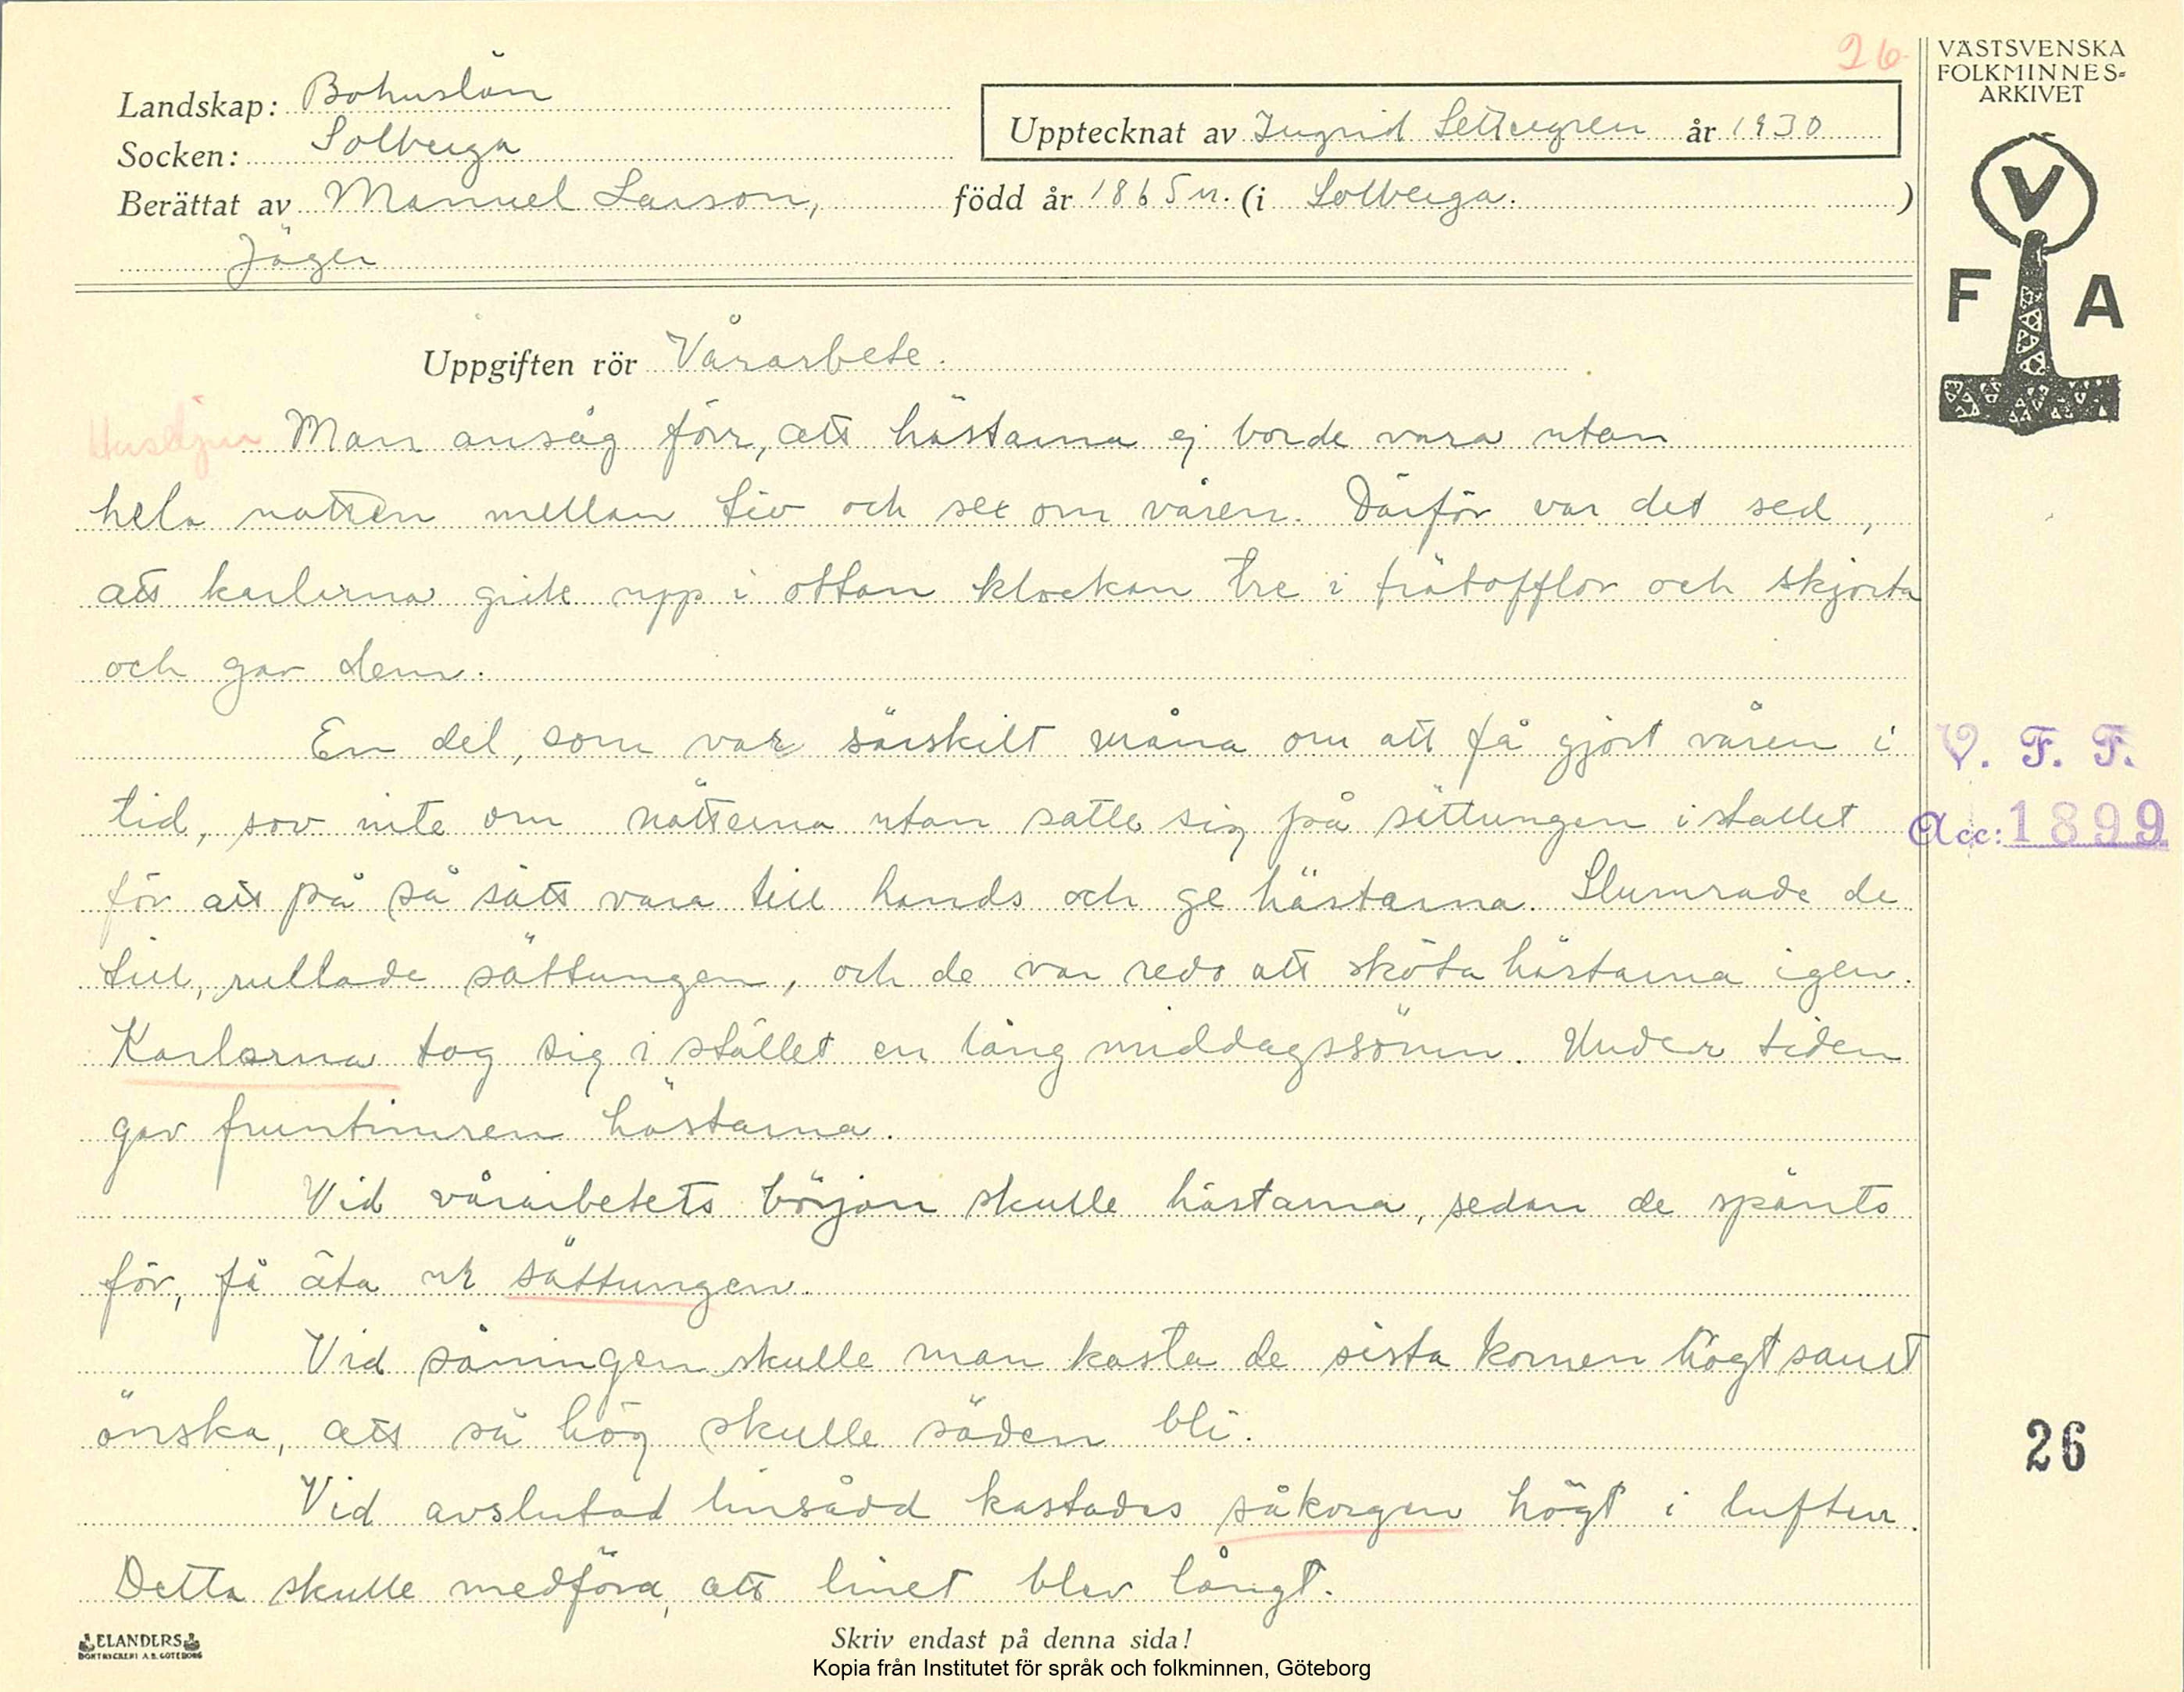 26
VÄSTSVENSKA
FOLKMINNES-
ARKIVET
Landskap: Bohuslän
Upptecknat av Ingrid Settergren år 1930
Socken: Solberga
Berättat av Manuel Larson, född år 1865 (i Solberga.)
Jäger
V
F A
Uppgiften rör Vårarbete.
Husdjur
Man ansåg förr, att hästarna ej borde vara utan
hela natten mellan tio och sex om våren. Därför var det sed,
att karlarna gick upp i ottan klockan tre i trätofflor och skjorta
och gav dem.
En del, som var särskilt måna om att få gjort våren i
tid, sov inte om nätterna utan satte sig på sättungen i stallet
för att på så sätt vara till hands och ge hästarna. Slumrade de
till, rullade sättungen, och de var redo att sköta hästarna igen.
Karlarna tog sig i stället en lång middagssömn. Under tiden
gav fruntimren hästarna.
Vid vårarbetets början skulle hästarna, sedan de spänts
för, få äta ur sättungen.
Vid såningen skulle man kasta de sista kornen högt samt
önska, att så hög skulle säden bli.
Vid avslutad linsådd kastades såkorgen högt i luften.
Detta skulle medföra, att linet blev långt.
V. F. F.
Acc: 1899
26
ELANDERS
BOKTRYCKERI A.B. GÖTEBORG
Skriv endast på denna sida!
Kopia från Institutet för språk och folkminnen, Göteborg